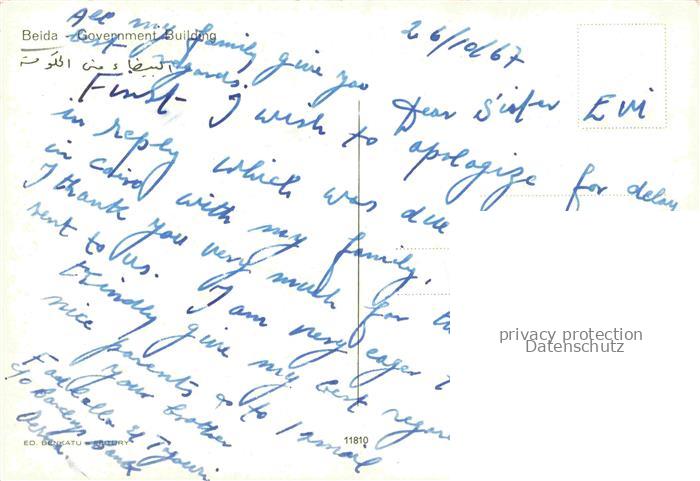 All my family give you
best regards.
Beida - Government Building
البيضاء مبنى الحكومة
26/10/67
Dear Sister Evi
First I wish to apologize for delay
in reply which was due
in cairo with my family,
I thank you very much for
sent to us. I am very eager
Kindly give my best regar
nice parents & to Ismail
Your brother
Fadballa El Tajouri
c/o Barclays Bank
Derna.
ED. BENKATU -
11810
privacy protection
Datenschutz